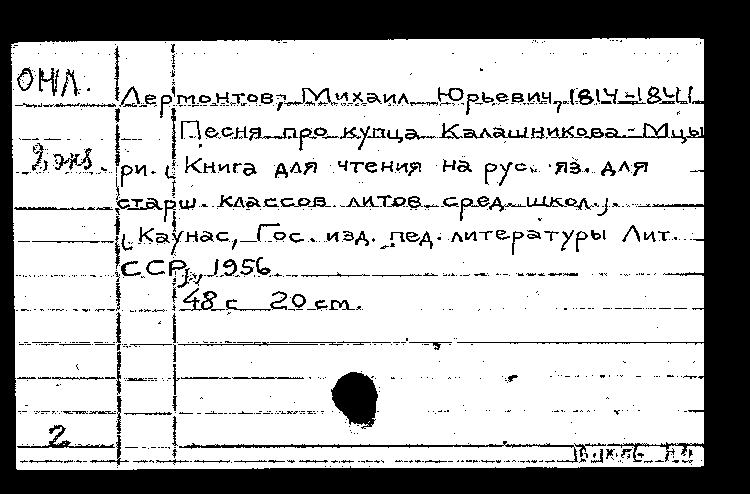 ОМЛ.
Лермонтов, Михаил Юрьевич, 1814-1841
Песня про купца Калашникова - Мцы
2 экз.
ри. [Книга для чтения на рус. яз. для
старш. классов литов. сред. школ.].
[Каунас, Гос. изд. пед. литературы Лит.
ССР], 1956.
48 с 20 см.
2